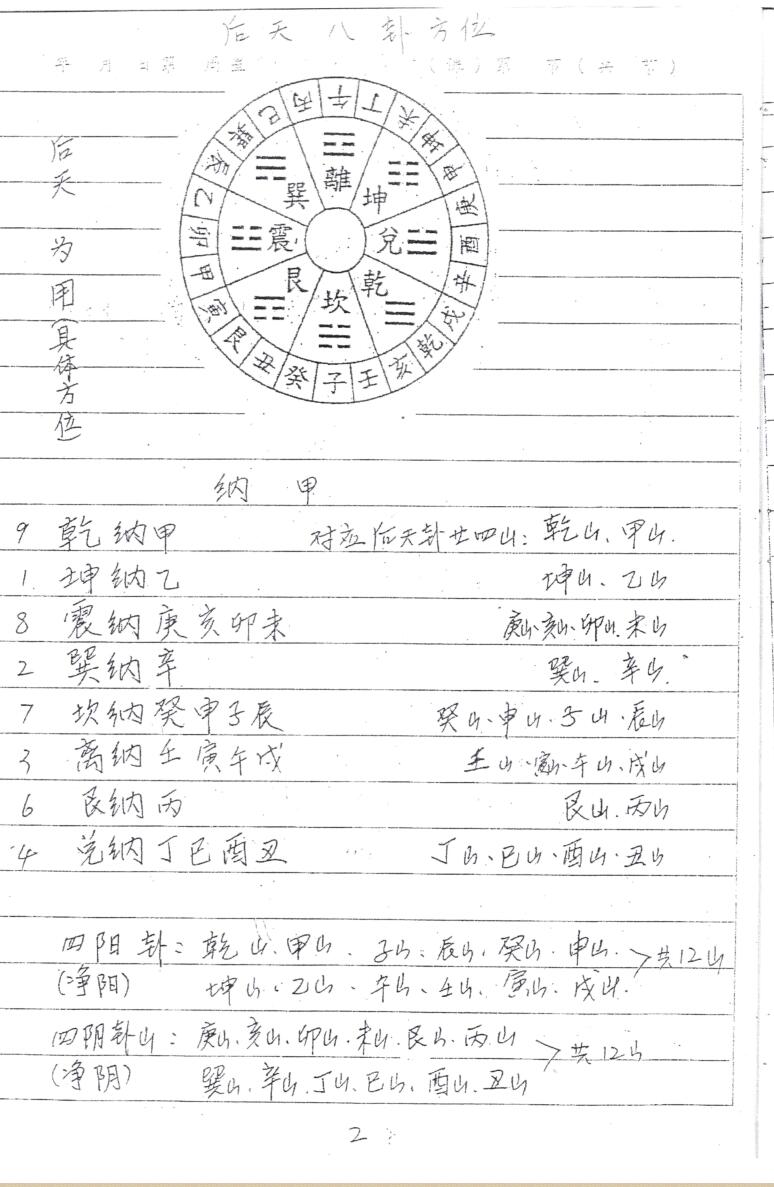 后天八卦方位
年 月 日第 周星 (课)第 节(共 节)
后天为用(具体方位)
巽 巳 丙 午 丁 未 坤 申 庚 酉 辛 戌 乾 亥 壬 子 癸 丑 艮 寅 甲 卯 乙 辰
離 坤 兌 乾 坎 艮 震 巽
纳 甲
9 乾纳甲 对应后天卦廿四山：乾山、甲山.
1 坤纳乙 坤山、乙山
8 震纳庚亥卯未 庚山、亥山、卯山.未山
2 巽纳辛 巽山、辛山.
7 坎纳癸申子辰 癸山、申山.子山.辰山
3 离纳壬寅午戌 壬山、寅山.午山.戌山
6 艮纳丙 艮山.丙山
4 兑纳丁巳酉丑 丁山、巳山、酉山.丑山
四阳卦：乾山.甲山、子山、辰山、癸山、申山. >共12山
(净阳) 坤山、乙山、午山、壬山、寅山、戌山.
四阴卦山：庚山、亥山、卯山.未山.艮山.丙山 >共12山
(净阴) 巽山、辛山.丁山.巳山、酉山.丑山
2